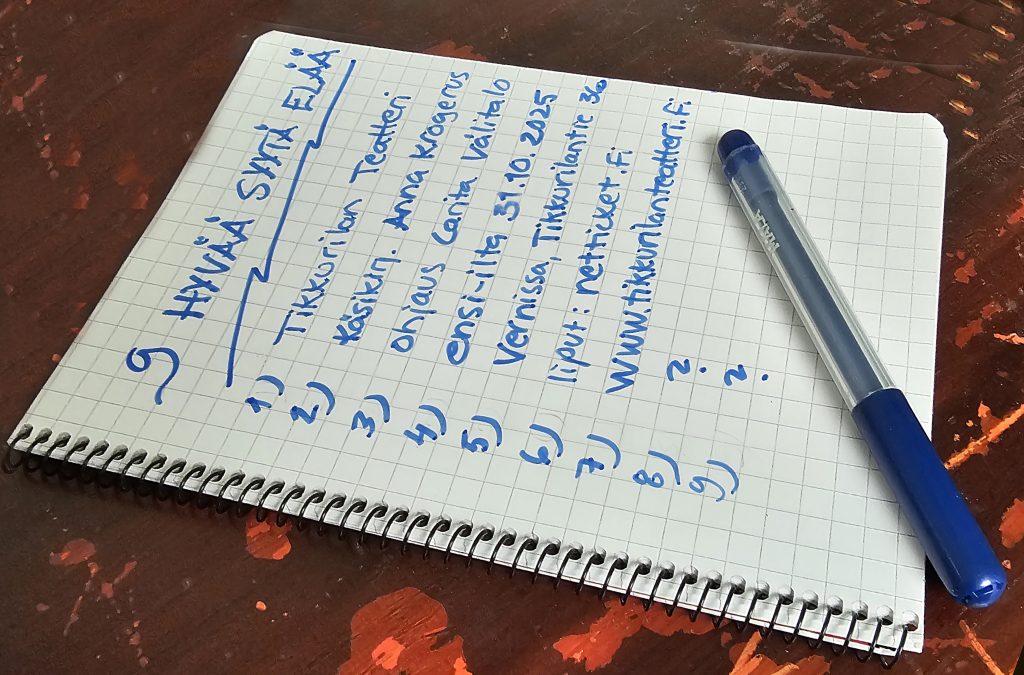 9 HYVÄÄ SYYTÄ ELÄÄ
1) Tikkurilan Teatteri
2) Käsikirj. Anna Krogerus
3) ohjaus Carita Välitalo
4) ensi-ilta 31.10.2025
5) Vernissa, Tikkurilantie 36
6) liput: netticket.fi
7) www.tikkurilanteatteri.fi
8) ?
9) ?
MAPED